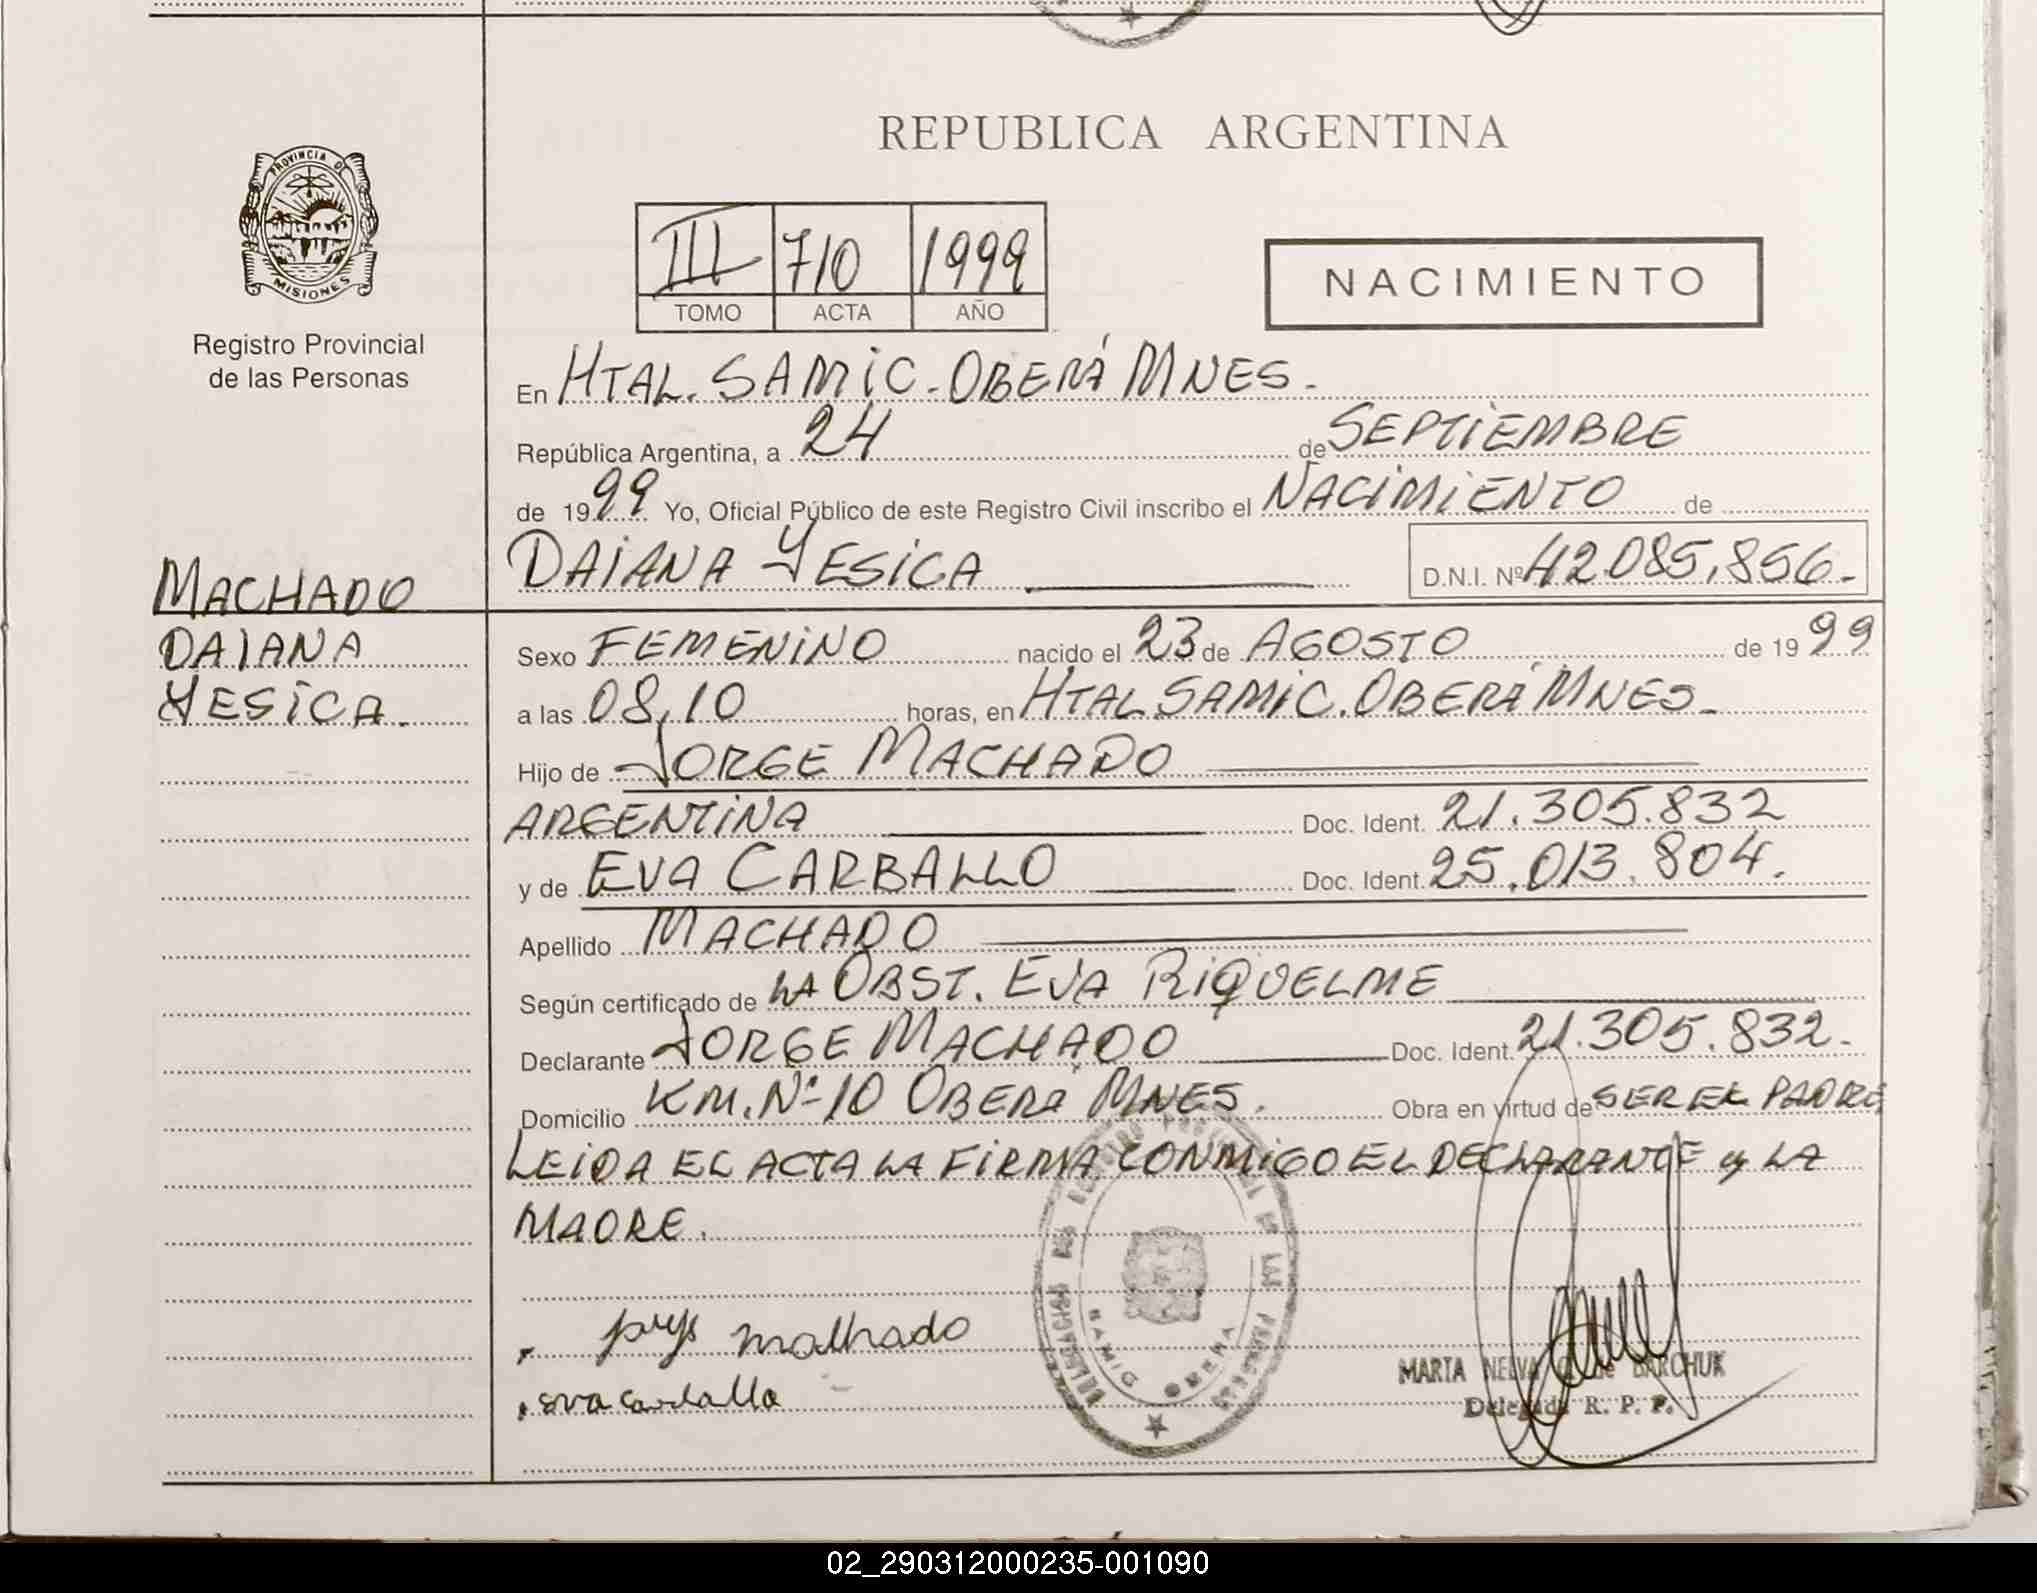 REPUBLICA ARGENTINA
PROVINCIA DE
MISIONES
Registro Provincial
de las Personas
III 710 1999
TOMO ACTA AÑO
NACIMIENTO
En HTAL. SAMIC. OBERÁ MNES.
República Argentina, a 24 de SEPTIEMBRE
de 1999 Yo, Oficial Público de este Registro Civil inscribo el NACIMIENTO de
DAIANA YESICA D.N.I. Nº 42.085.856.
MACHADO
DAIANA
YESICA.
Sexo FEMENINO nacido el 23 de AGOSTO de 1999
a las 08,10 horas, en HTAL SAMIC. OBERÁ MNES.
Hijo de JORGE MACHADO
ARGENTINA Doc. Ident. 21.305.832
y de EVA CARBALLO Doc. Ident. 25.013.804.
Apellido MACHADO
Según certificado de LA OBST. EVA RIQUELME
Declarante JORGE MACHADO Doc. Ident. 21.305.832.
Domicilio KM. Nº 10 OBERÁ MNES. Obra en virtud de SER EL PADRE
LEIDA EL ACTA LA FIRMA CONMIGO EL DECLARANTE y LA
MADRE.
malhado
eva carballo
DELEGACION DEL REGISTRO PROVINCIAL DE LAS PERSONAS
SAMIC OBERA
MARTA NELVA de BARCHUK
Delegada R. P. P.
02_290312000235-001090